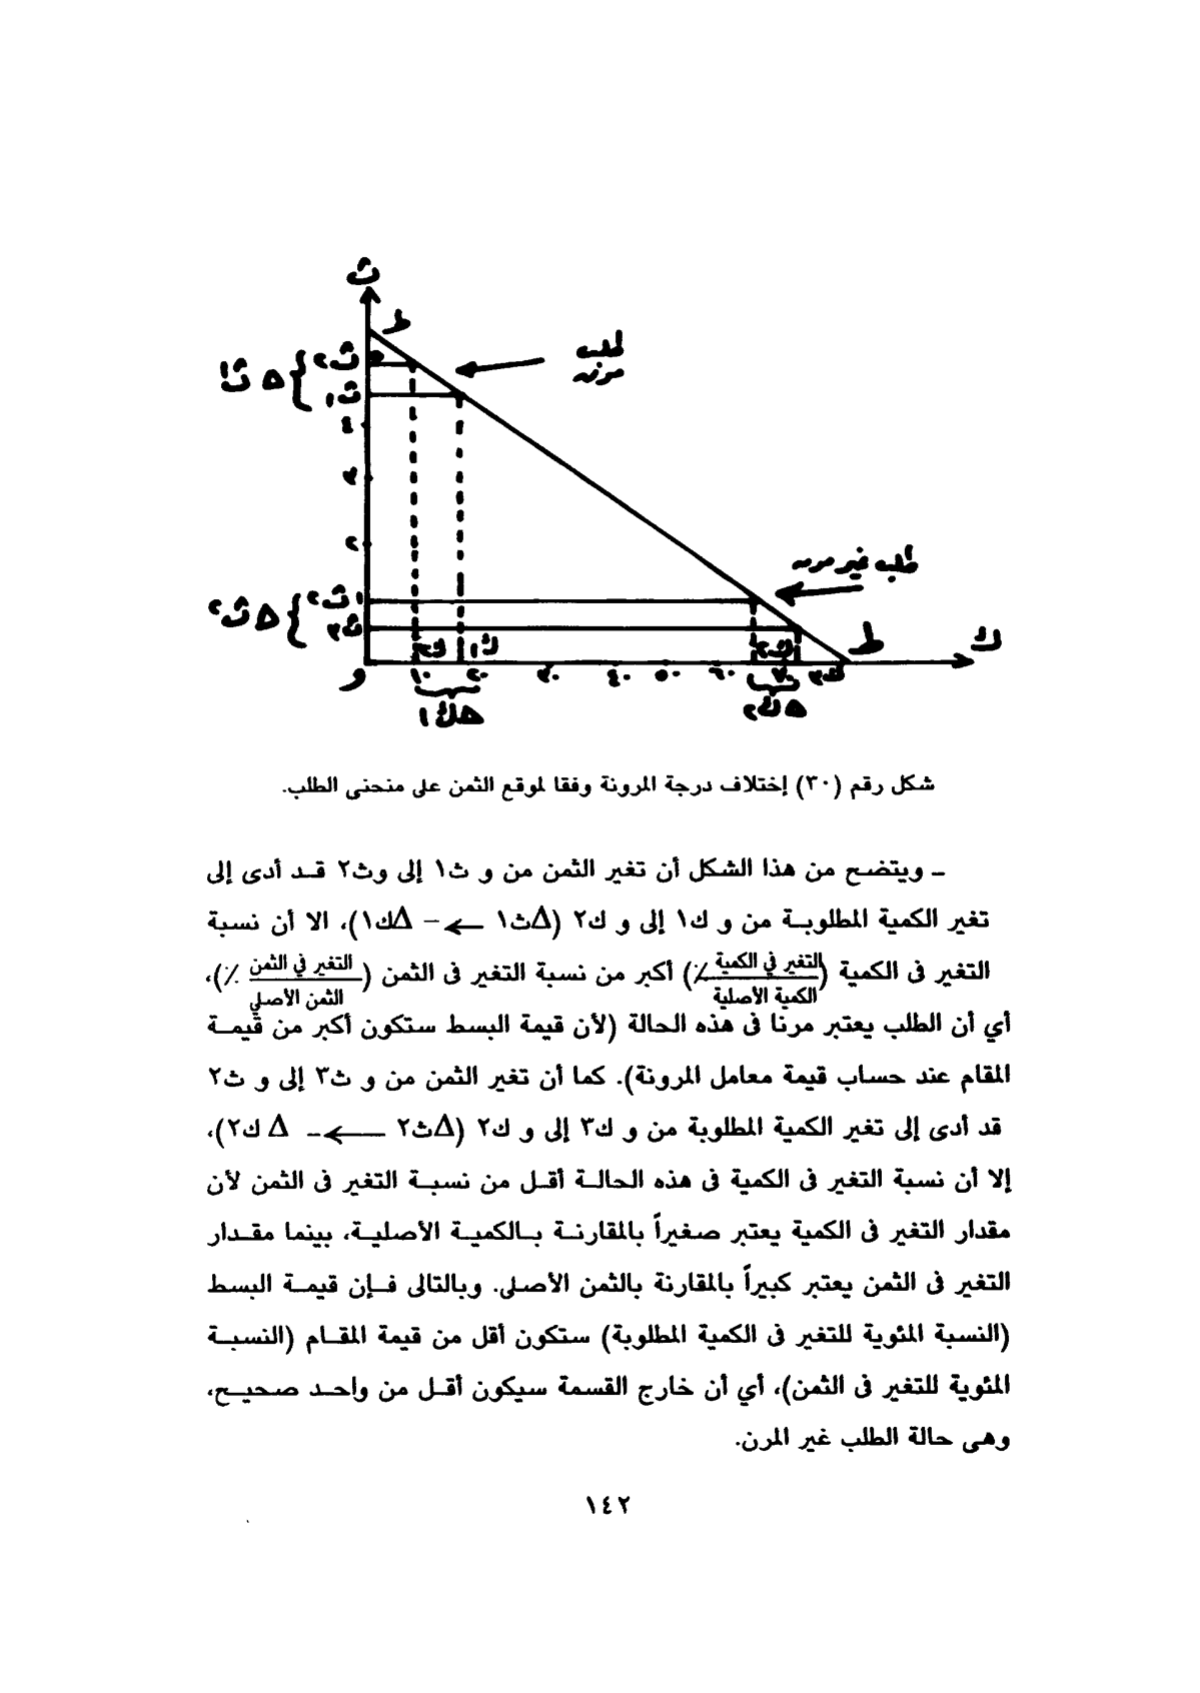 ث
ط
ث٢
٥
طلب
مرن
∆ ث١
ث١
٤
٣
٢
طلب غير مرن
∆ث٢
ث٣
ط
ك
ك٢
ك١
ك٢
و
١٠
٢٠
٣٠
٤٠
٥٠
٦٠
٧٠
ك٣
∆ك١
∆ك٢
شكل رقم (٣٠) إختلاف درجة المرونة وفقا لموقع الثمن على منحنى الطلب.
ـ ويتضح من هذا الشكل أن تغير الثمن من و ث١ إلى وث٢ قد أدى إلى
تغير الكمية المطلوبة من و ك١ إلى و ك٢ (∆ث١ ← – ∆ك١)، الا أن نسبة
التغير فى الكمية (التغير في الكمية / الكمية الأصلية ٪) أكبر من نسبة التغير فى الثمن (التغير في الثمن / الثمن الأصلي ٪)،
أي أن الطلب يعتبر مرنا فى هذه الحالة (لأن قيمة البسط ستكون أكبر من قيمة
المقام عند حساب قيمة معامل المرونة). كما أن تغير الثمن من و ث٣ إلى و ث٢
قد أدى إلى تغير الكمية المطلوبة من و ك٣ إلى و ك٢ (∆ث٢ ← – ∆ ك٢)،
إلا أن نسبة التغير فى الكمية فى هذه الحالة أقل من نسبة التغير فى الثمن لأن
مقدار التغير فى الكمية يعتبر صغيراً بالمقارنة بالكمية الأصلية، بينما مقدار
التغير فى الثمن يعتبر كبيراً بالمقارنة بالثمن الأصلى. وبالتالى فإن قيمة البسط
(النسبة المئوية للتغير فى الكمية المطلوبة) ستكون أقل من قيمة المقام (النسبة
المئوية للتغير فى الثمن)، أي أن خارج القسمة سيكون أقل من واحد صحيح،
وهى حالة الطلب غير المرن.
١٤٢